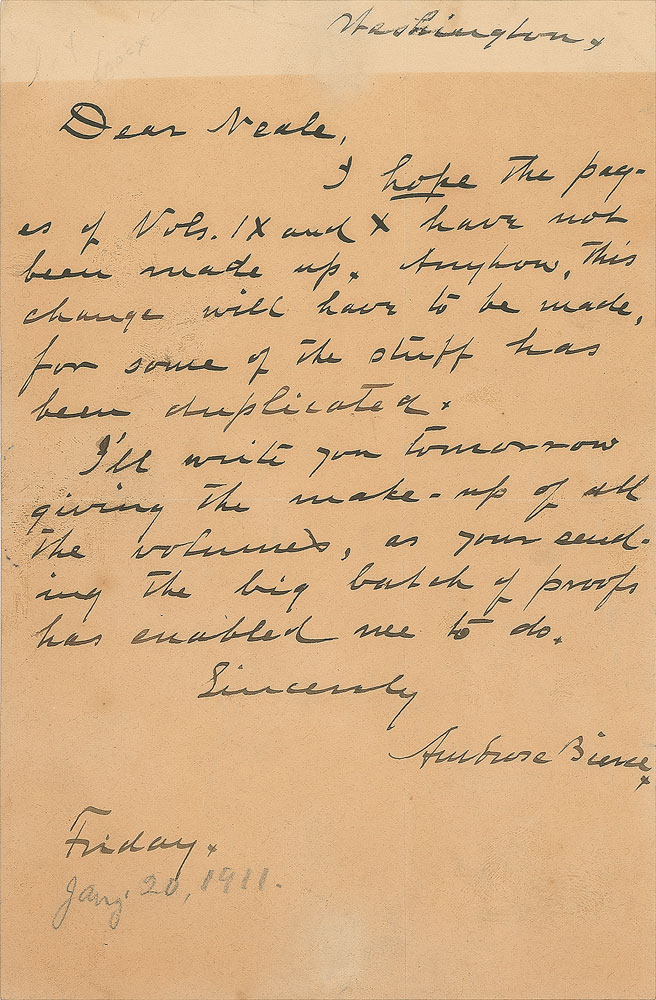 Washington.
Dear Neale,
I hope the pag-
es of Vols. IX and X have not
been made up. Anyhow, this
change will have to be made,
for some of the stuff has
been duplicated.
I'll write you tomorrow
giving the make-up of all
the volumes, as your send-
ing the big batch of proofs
has enabled me to do.
Sincerely
Ambrose Bierce.
Friday.
Jany. 20, 1911.